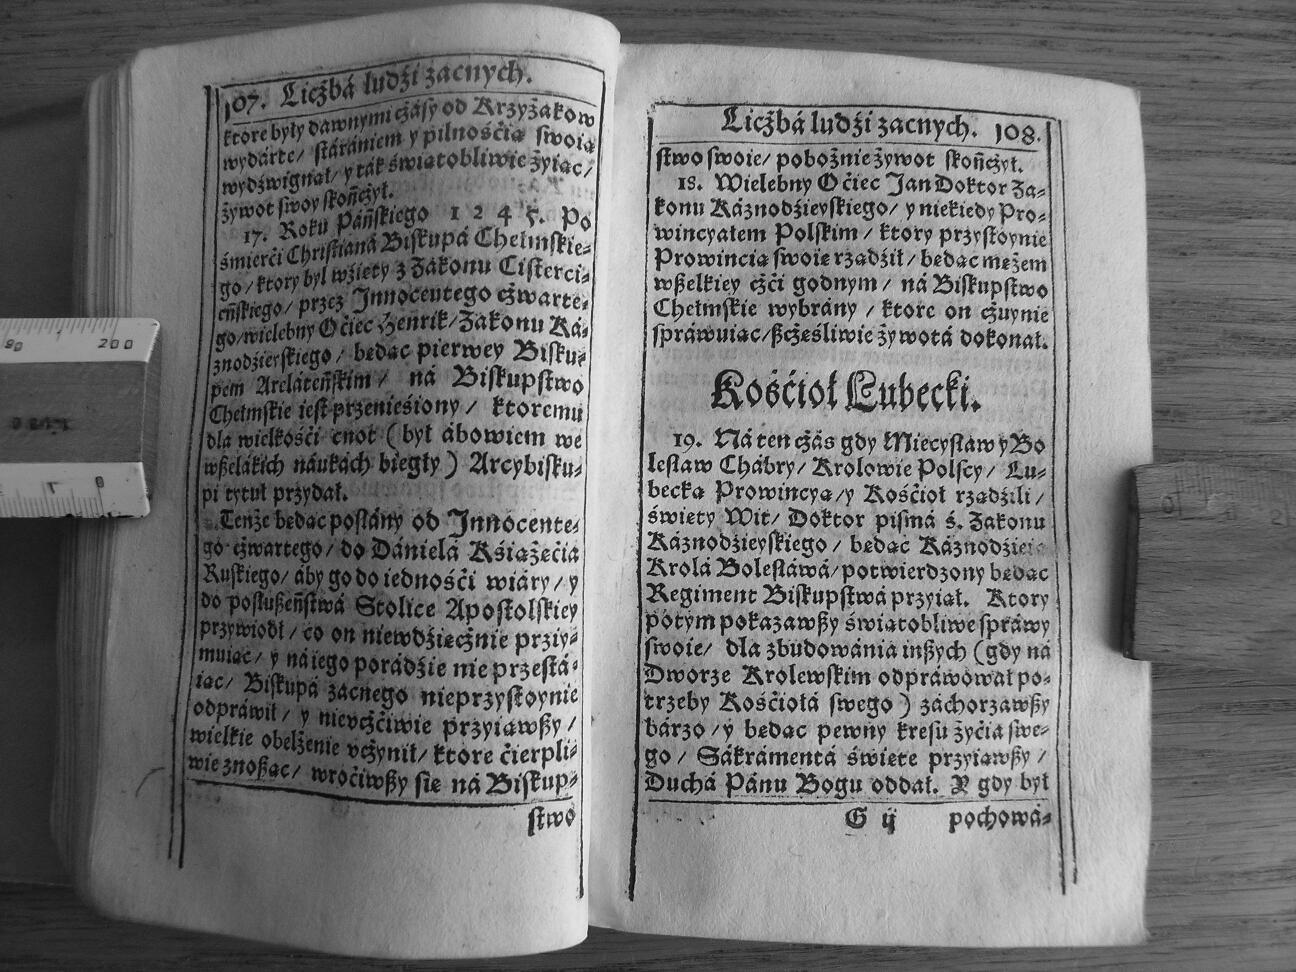 107. Liczbá ludźi zacnych.
ktore były dawnymi czásy od Krzyżakow
wydárte/ stáraniem y pilnośćia swoia
wydźwignał/ y ták świątobliwie żyiac/
żywot swoy skończył.
17. Roku Páńskiego 1 2 4 5. Po
śmierći Christianá Biskupá Chełmskie-
go/ ktory był wźiety z Zakonu Cisterci-
eńskiego/ przez Innocentego czwarte-
go/ wielebny Oćiec Henrik/ Zakonu Ká-
znodźieyskiego/ bedac pierwey Bisku-
pem Areláteńskim/ ná Biskupstwo
Chełmskie iest przenieśiony/ ktoremu
dla wielkośći cnot (był ábowiem we
wßelákich náukách biegły) Arcybisku-
pi tytuł przydał.
Tenże bedac posłány od Innocente-
go czwartego/ do Dánielá Kśiażećia
Ruskiego/ áby go do iednośći wiáry/ y
do posłußeństwá Stolice Apostolskiey
przywiodł/ co on niewdźiecznie przyi-
muiac/ y ná iego porádźie nie przestá-
iac/ Biskupá zacnego nieprzystoynie
odpráwił/ y nieuczćiwie przyiawßy/
wielkie obelżenie vczynił/ ktore ćierpli-
wie znoßac/ wroćiwßy sie ná Biskup-
stwo
Liczbá ludźi zacnych. 108.
stwo swoie/ pobożnie żywot skończył.
18. Wielebny Oćiec Jan Doktor Za-
konu Káznodźieyskiego/ y niekiedy Pro-
wincyałem Polskim/ ktory przystoynie
Prowincia swoie rzadźił/ bedac meżem
wßelkiey czći godnym/ ná Biskupstwo
Chełmskie wybrány/ ktore on czuynie
spráwuiac/ ßcześliwie żywotá dokonał.
Kośćioł Lubecki.
19. Ná ten czás gdy Miecysław y Bo
lesław Chábry/ Krolowie Polscy/ Lu-
becka Prowincya/ y Kośćioł rzadźili/
świety Wit/ Doktor pismá ś. Zakonu
Káznodźieyskiego/ bedac Káznodźieia
Krolá Bolesławá/ potwierdzony bedac
Regiment Biskupstwá przyiał. Ktory
potym pokazawßy świątobliwe spráwy
swoie/ dla zbudowánia inßych (gdy ná
Dworze Krolewskim odpráwował po-
trzeby Kośćiołá swego) záchorzawßy
bárzo/ y bedac pewny kresu żyćia swe-
go/ Sákrámentá świete przyiawßy/
Duchá Pánu Bogu oddał. Y gdy był
G ij pochowá-
0
200